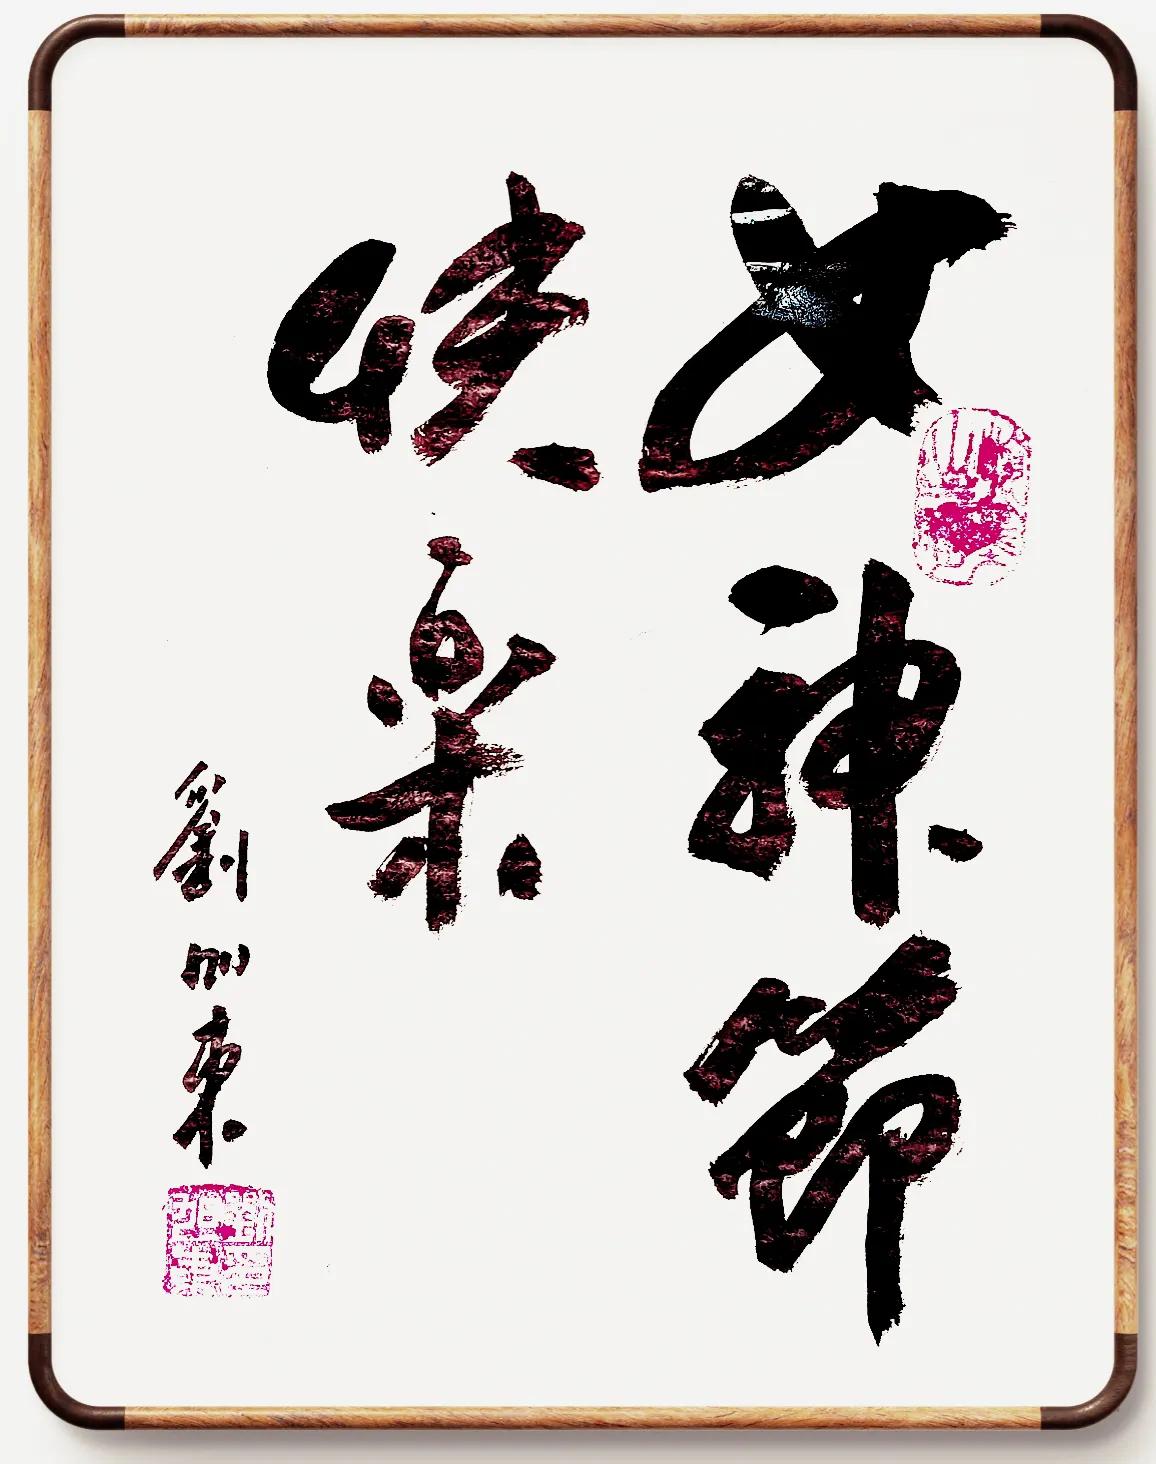 女神節
快樂
劉加東